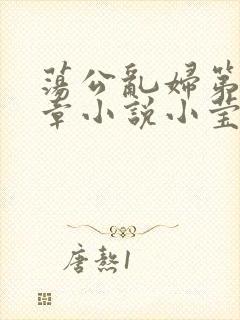 蕩公亂婦第
章小說小莹
唐熬1